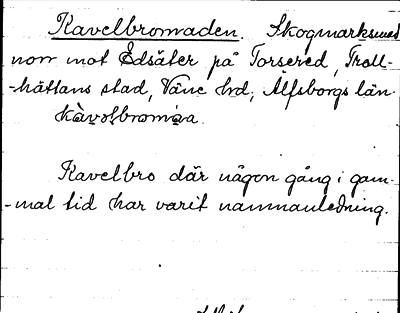 Kavelbromaden. Skogmarksmed
norr mot Edsäter på Torsered, Troll-
-hättans stad, Väne hd, Älfsborgs län.
kàvəlbromàa.
Kavelbro där någon gång i gam-
-mal tid har varit namnanledning.